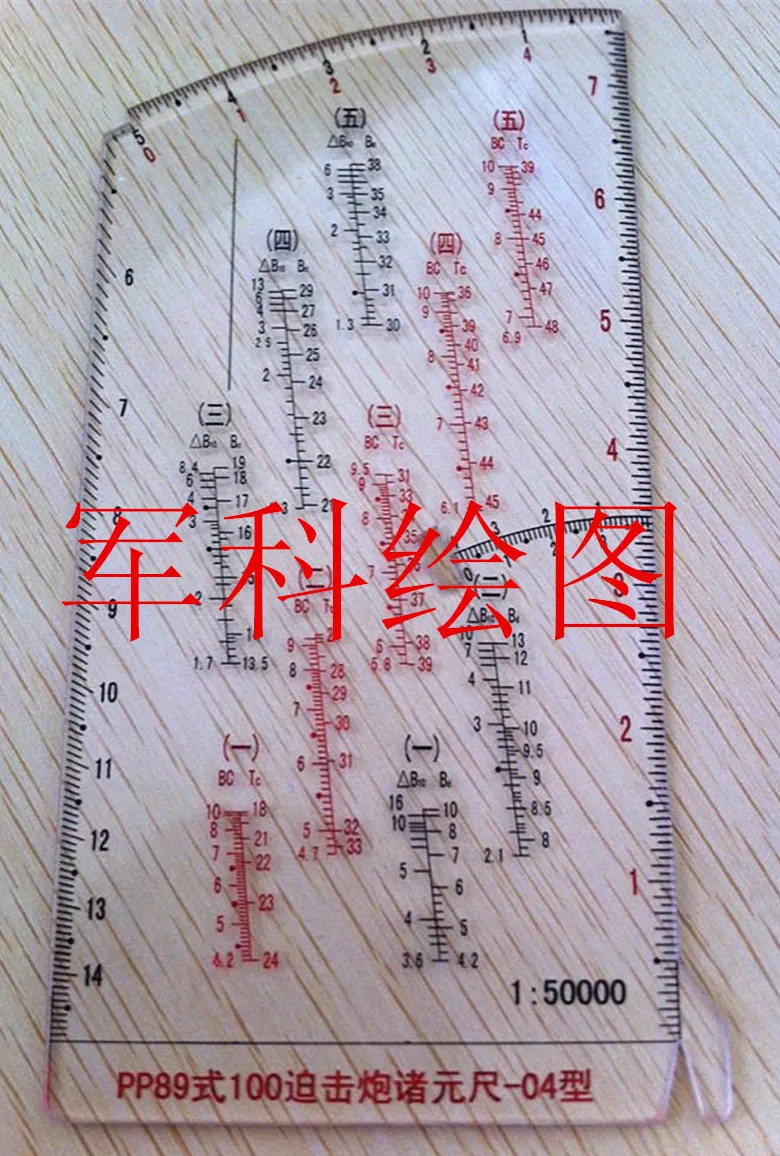 5 4 3 2 1
0 1 2 3 4
7
6
5
4
3
2
1
6
7
8
9
10
11
12
13
14
(五)
△B₁₀ Bₑ
6 38
3 35
34
2 33
32
31
1.3 30
(五)
BC Tc
10 39
9
44
8 45
46
47
7
6.9 48
(四)
△B₁₀ Bₑ
13 29
6
4 27
3 26
2.5
25
2 24
23
22
(四)
BC Tc
10 36
9
39
40
8 41
42
7 43
44
6.1 45
(三)
△B₁₀ Bₑ
8.4 19
6 18
4 17
3
16
2
1.7 13.5
(三)
BC Tc
9.5 31
9
33
8
35
7
37
6 38
5.8 39
3 2 1
0 1 2
BC Tc
9
8 28
29
7
30
6 31
5 32
4.7 33
(二)
△B₁₀ Bₑ
10 13
7 12
4 11
3 10
9.5
9
8.5
8
2.1
(一)
BC Tc
10 18
8 21
7
22
6
23
5
4.2 24
(一)
△B₁₀ Bₑ
16 10
10 8
7
5
6
4 5
3.6 4.2
军科绘图
1:50000
PP89式100迫击炮诸元尺-04型